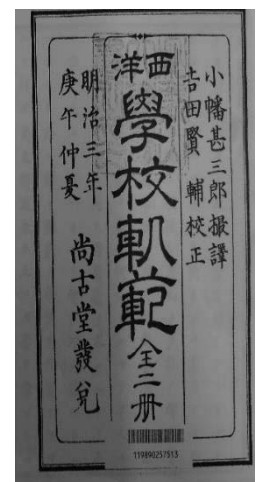 小幡甚三郎撮譯
吉田賢輔校正
西洋
學校軌範
全二册
明治三年
庚午仲夏
尚古堂發兌
119890257513